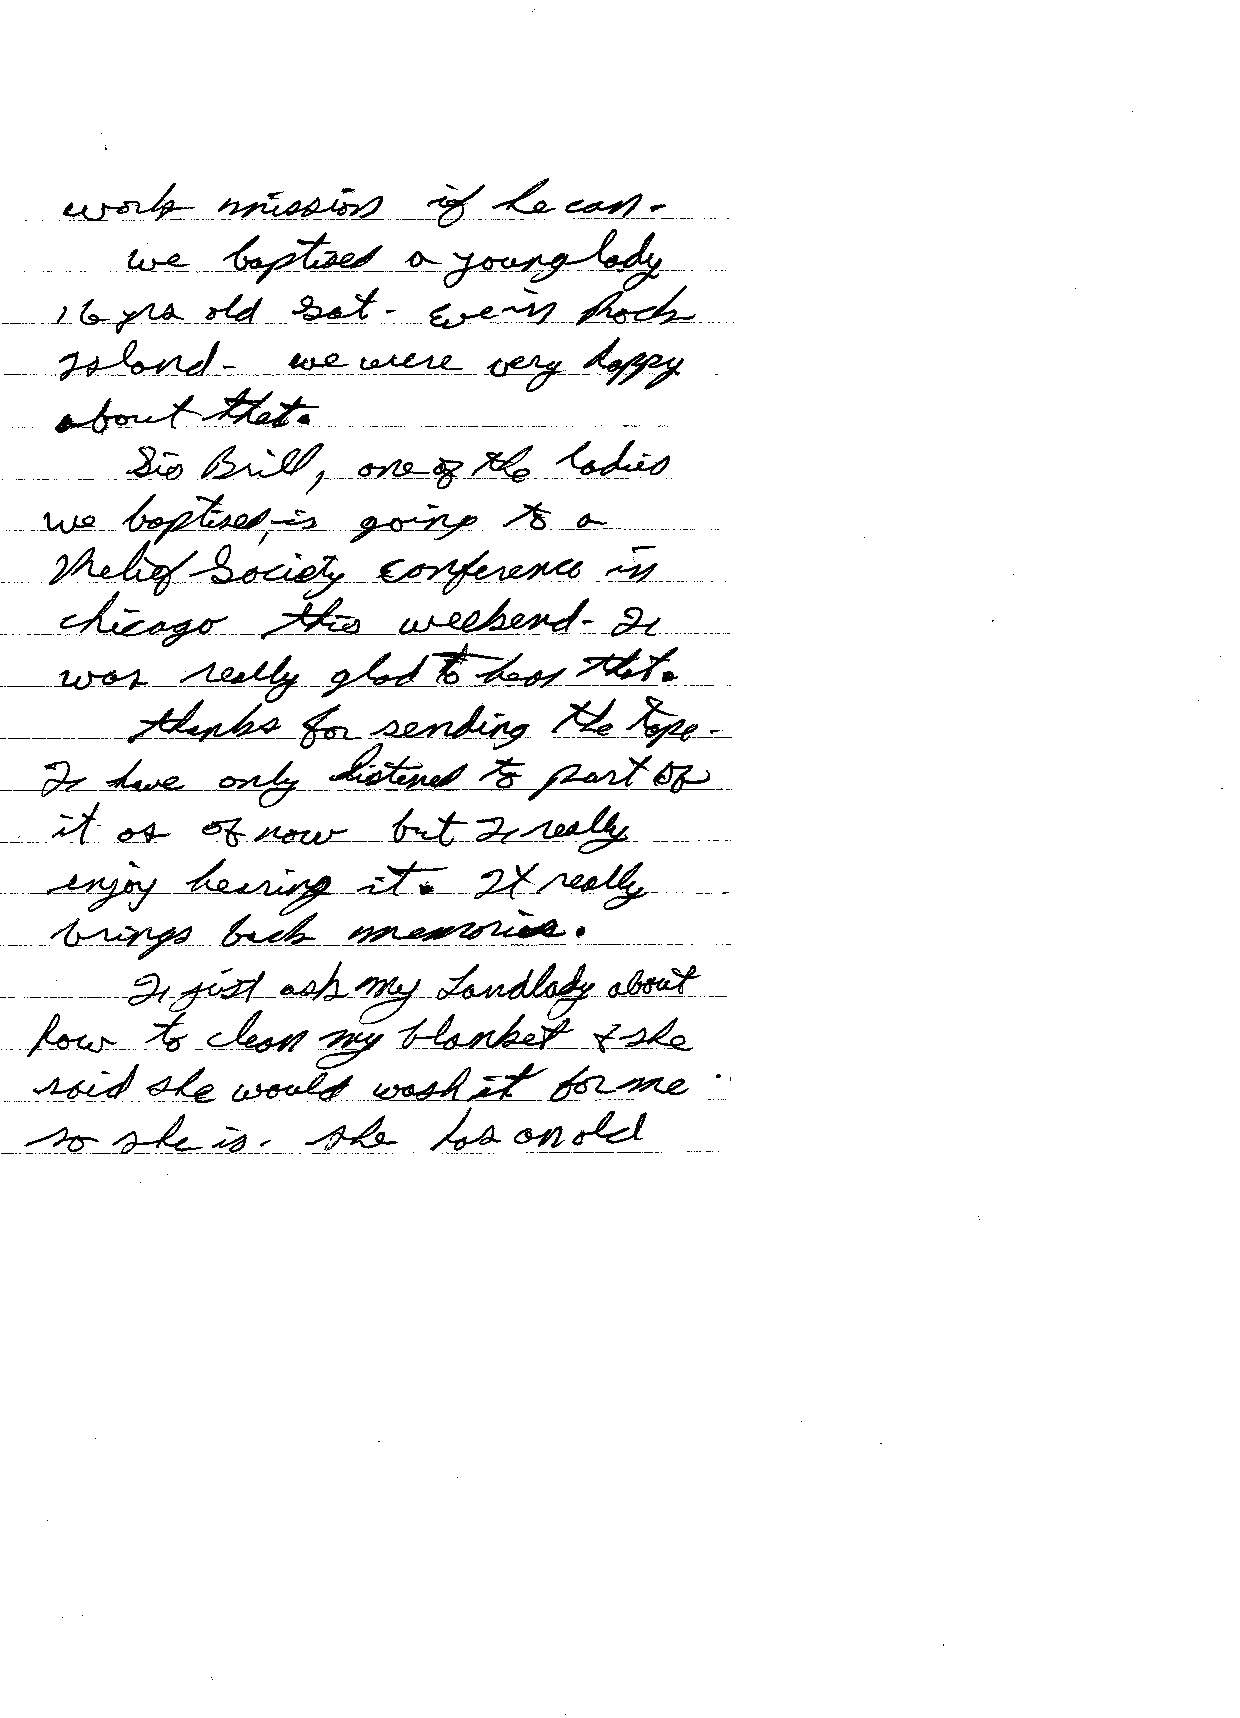 work mission if he can.
we baptized a young lady
16 yrs old Sat. Eve in Rock
Island. we were very happy
about that.
Sis Brill, one of the ladies
we baptised, is going to a
Relief Society conference in
chicago this weekend. I
was really glad to hear that.
thanks for sending the tape.
I have only listened to part of
it as of now but I really
enjoy hearing it. It really
brings back memories.
I just ask my Landlady about
how to clean my blanket & she
said she would wash it for me
so she is. she has an old